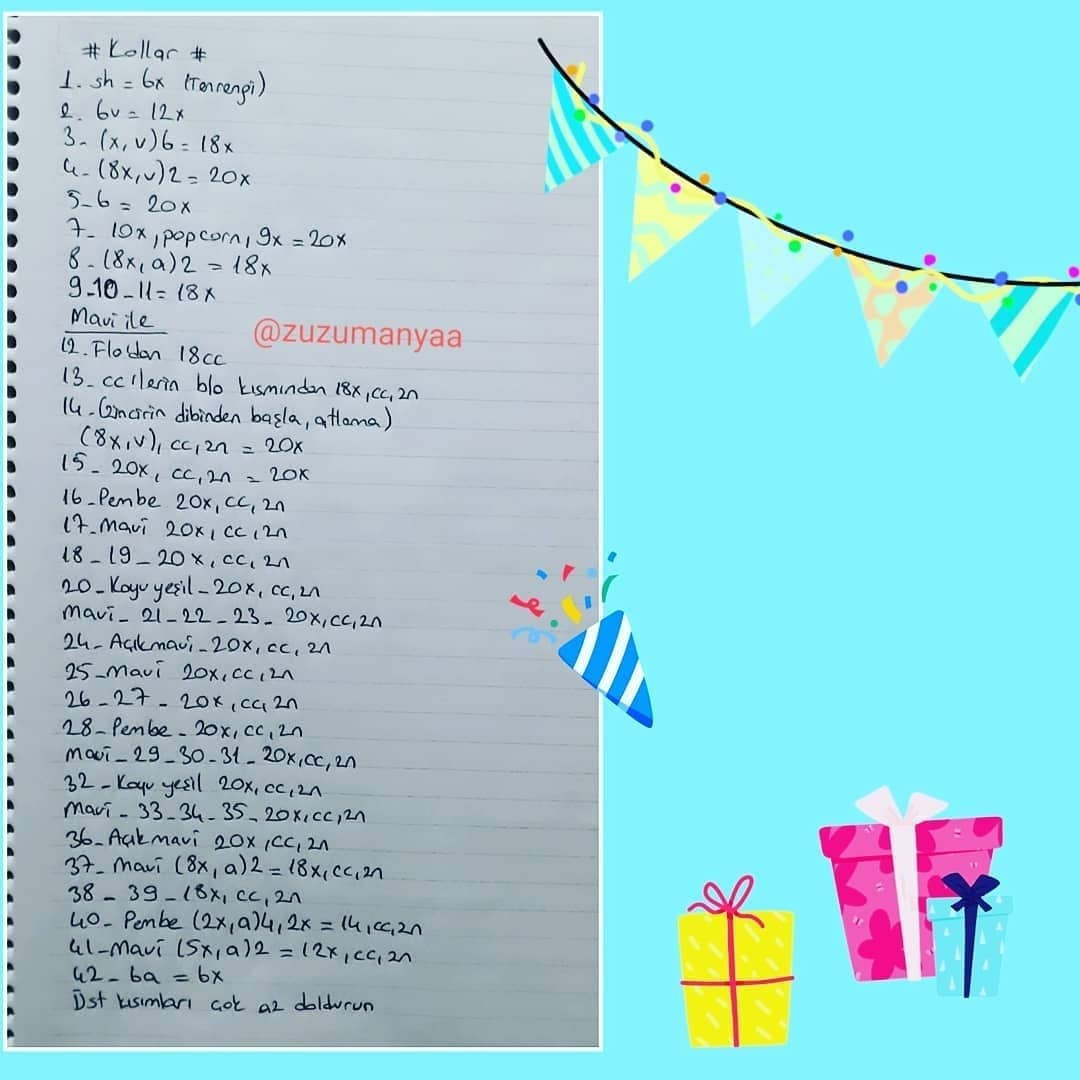 # Kollar #
1. sh = 6x (Tenrengi)
2. 6v = 12x
3- (x,v)6 = 18x
4- (8x,v)2 = 20x
5-6 = 20x
7- 10x, popcorn, 9x = 20x
8- (8x,a)2 = 18x
9-10-11 = 18x
Mavi ile
@zuzumanyaa
12. Flo'dan 18cc
13- cc'lerin blo kısmından 18x,cc,2n
14-(zincirin dibinden başla, atlama)
(8x,v), cc,2n = 20x
15- 20x, cc,2n = 20x
16-Pembe 20x,cc,2n
17-Mavi 20x,cc,2n
18-19-20x,cc,2n
20-Koyu yeşil-20x,cc,2n
Mavi-21-22-23-20x,cc,2n
24-Açık mavi-20x,cc,2n
25-Mavi 20x,cc,2n
26-27-20x,cc,2n
28-Pembe-20x,cc,2n
Mavi-29-30-31-20x,cc,2n
32-Koyu yeşil 20x,cc,2n
Mavi-33-34-35-20x,cc,2n
36-Açık mavi 20x,cc,2n
37-Mavi (8x,a)2 = 18x,cc,2n
38-39-18x,cc,2n
40-Pembe (2x,a)4,2x = 14,cc,2n
41-Mavi (5x,a)2 = 12x,cc,2n
42-6a = 6x
Üst kısımları çok az doldurun